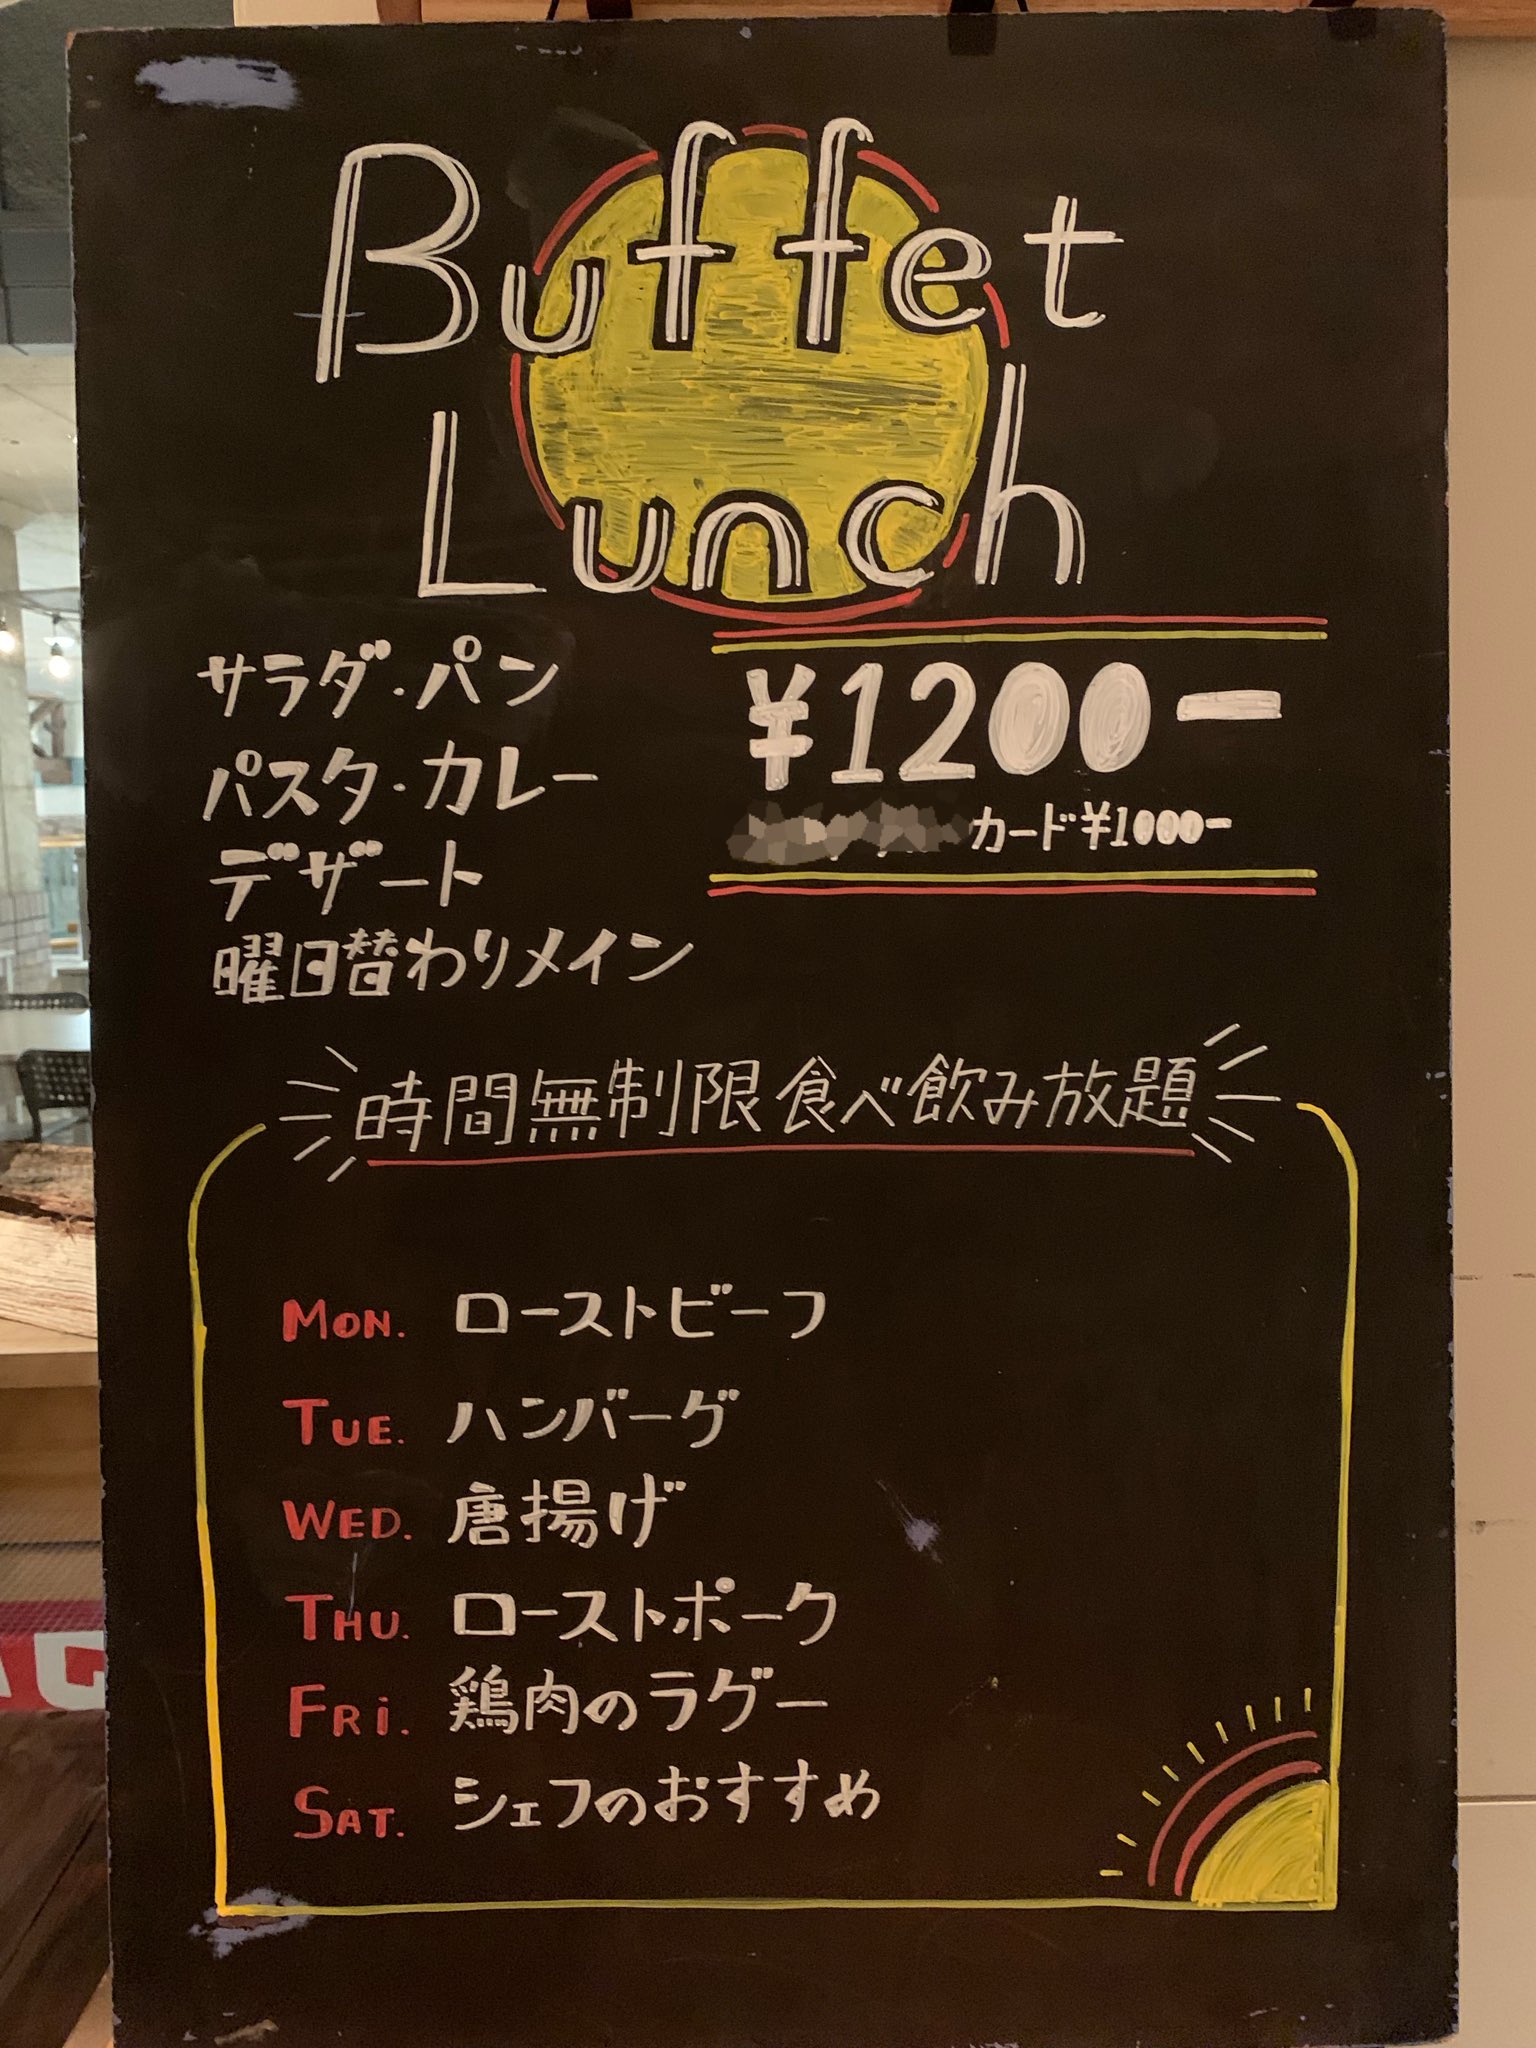 Buffet
Lunch
サラダ・パン
パスタ・カレー
デザート
曜日替わりメイン
¥1200ー
カード¥1000ー
時間無制限食べ飲み放題
MON. ローストビーフ
TUE. ハンバーグ
WED. 唐揚げ
THU. ローストポーク
FRi. 鶏肉のラグー
SAT. シェフのおすすめ